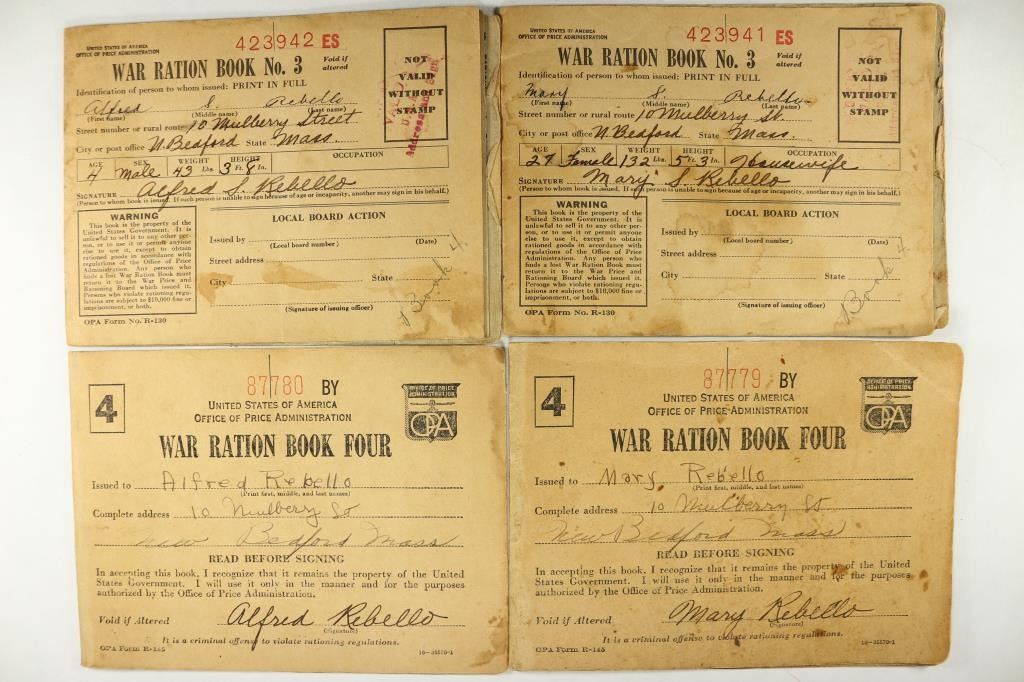 UNITED STATES OF AMERICA
OFFICE OF PRICE ADMINISTRATION
423942 ES
WAR RATION BOOK No. 3
Void if
altered
NOT
VALID
WITHOUT
STAMP
Identification of person to whom issued: PRINT IN FULL
Alfred S. Rebello
(First name) (Middle name) (Last name)
Street number or rural route 10 Mulberry Street
City or post office N. Bedford State Mass.
AGE SEX WEIGHT HEIGHT OCCUPATION
4 Male 43 Lbs. 3 Ft. 8 In.
SIGNATURE Alfred S. Rebello
(Person to whom book is issued. If such person is unable to sign because of age or incapacity, another may sign in his behalf.)
WARNING
This book is the property of the
United States Government. It is
unlawful to sell it to any other per-
son, or to use it or permit anyone
else to use it, except to obtain
rationed goods in accordance with
regulations of the Office of Price
Administration. Any person who
finds a lost War Ration Book must
return it to the War Price and
Rationing Board which issued it.
Persons who violate rationing regu-
lations are subject to $10,000 fine or
imprisonment, or both.
LOCAL BOARD ACTION
Issued by
(Local board number) (Date)
Street address
City State
(Signature of issuing officer)
Book 4
OPA Form No. R-130
UNITED STATES OF AMERICA
OFFICE OF PRICE ADMINISTRATION
423941 ES
WAR RATION BOOK No. 3
Void if
altered
NOT
VALID
WITHOUT
STAMP
Identification of person to whom issued: PRINT IN FULL
Mary S. Rebello
(First name) (Middle name) (Last name)
Street number or rural route 10 Mulberry St.
City or post office N. Bedford State Mass.
AGE SEX WEIGHT HEIGHT OCCUPATION
27 Female 132 Lbs. 5 Ft. 3 In. Housewife
SIGNATURE Mary S. Rebello
(Person to whom book is issued. If such person is unable to sign because of age or incapacity, another may sign in his behalf.)
WARNING
This book is the property of the
United States Government. It is
unlawful to sell it to any other per-
son, or to use it or permit anyone
else to use it, except to obtain
rationed goods in accordance with
regulations of the Office of Price
Administration. Any person who
finds a lost War Ration Book must
return it to the War Price and
Rationing Board which issued it.
Persons who violate rationing regu-
lations are subject to $10,000 fine or
imprisonment, or both.
LOCAL BOARD ACTION
Issued by
(Local board number) (Date)
Street address
City State
(Signature of issuing officer)
Book 4
OPA Form No. R-130
4
87780 BY
UNITED STATES OF AMERICA
OFFICE OF PRICE ADMINISTRATION
OFFICE OF PRICE
ADMINISTRATION
OPA
WAR RATION BOOK FOUR
Issued to Alfred Rebello
(Print first, middle, and last names)
Complete address 10 Mulberry St
New Bedford Mass
READ BEFORE SIGNING
In accepting this book, I recognize that it remains the property of the United
States Government. I will use it only in the manner and for the purposes
authorized by the Office of Price Administration.
Void if Altered Alfred Rebello
(Signature)
It is a criminal offense to violate rationing regulations.
OPA Form R-145 16-35570-1
4
87779 BY
UNITED STATES OF AMERICA
OFFICE OF PRICE ADMINISTRATION
OFFICE OF PRICE
ADMINISTRATION
OPA
WAR RATION BOOK FOUR
Issued to Mary Rebello
(Print first, middle, and last names)
Complete address 10 Mulberry St
New Bedford Mass
READ BEFORE SIGNING
In accepting this book, I recognize that it remains the property of the United
States Government. I will use it only in the manner and for the purposes
authorized by the Office of Price Administration.
Void if Altered Mary Rebello
(Signature)
It is a criminal offense to violate rationing regulations.
OPA Form R-145 16-35570-1